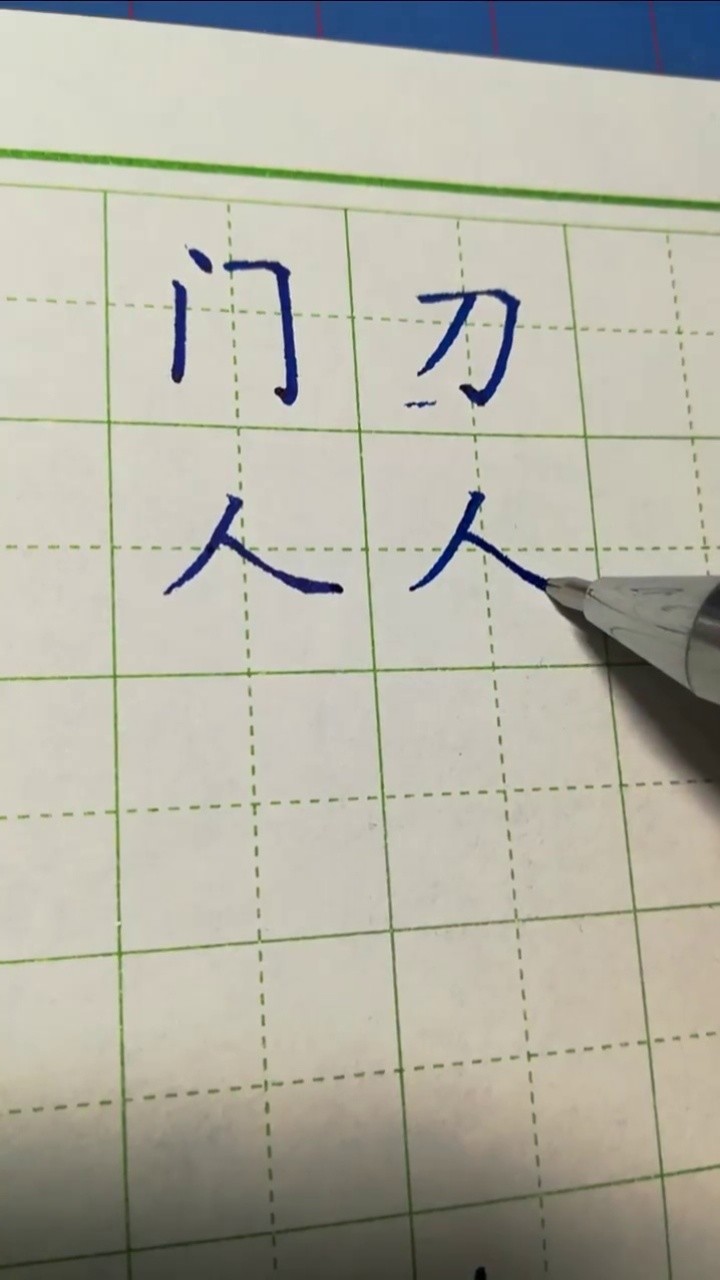 门 刀
人 人